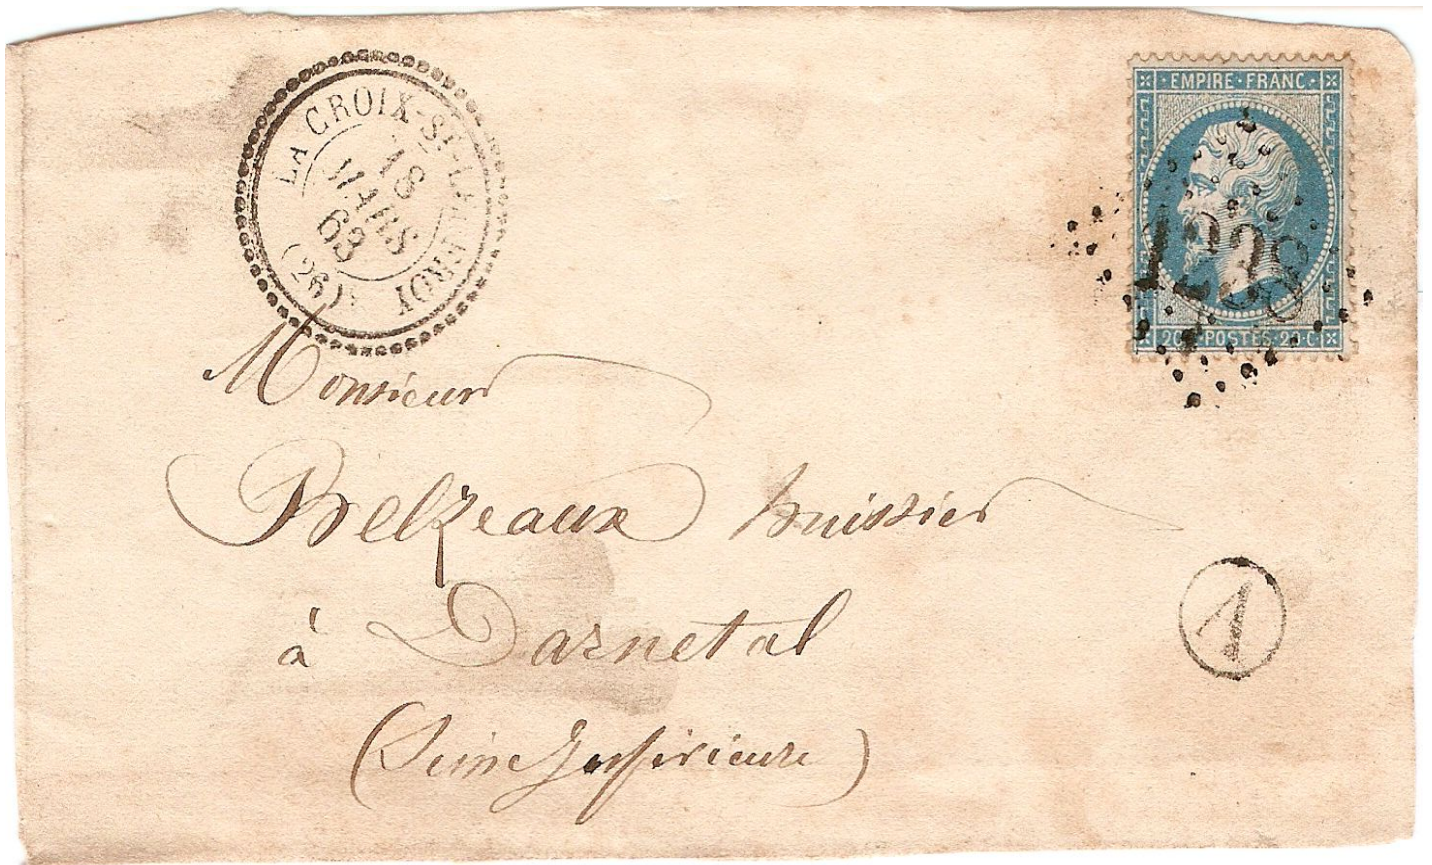 LA CROIX-ST-LEUFROY
18
MARS
63
(26)
EMPIRE·FRANC·
1238
20·C·POSTES·20·C·
Monsieur
Belzeaux huissier
à Darnetal
(Seine Inférieure)
1